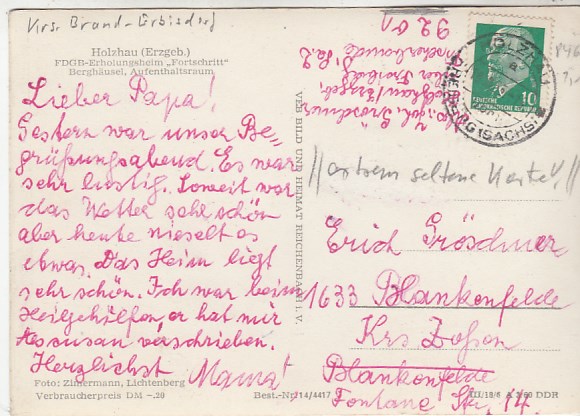 Krs. Brand-Erbisdorf
Holzhau (Erzgeb.)
FDGB-Erholungsheim „Fortschritt"
Berghäusel, Aufenthaltsraum
Lieber Papa!
Gestern war unser Be-
grüßungsabend. Es war
sehr lustig. Soweit war
das Wetter sehr schön
aber heute nieselt es
etwas. Das Heim liegt
sehr schön. Ich war beim
Heilgehilfen, er hat mir
verschrieben.
Herzlichst Mama
Foto: Zimermann, Lichtenberg
Verbraucherpreis DM -.20
VEB BILD UND HEIMAT REICHENBACH I. V.
Best.-Nr. 14/4417
III/18/6 A 3/60 DDR
9201
Holzhau/Erzgeb.
10
(SACHS)
seltene Karte!
Erich Gröschner
1633 Blankenfelde
Krs Zossen
Blankenfelde
Fontane Str. 14.